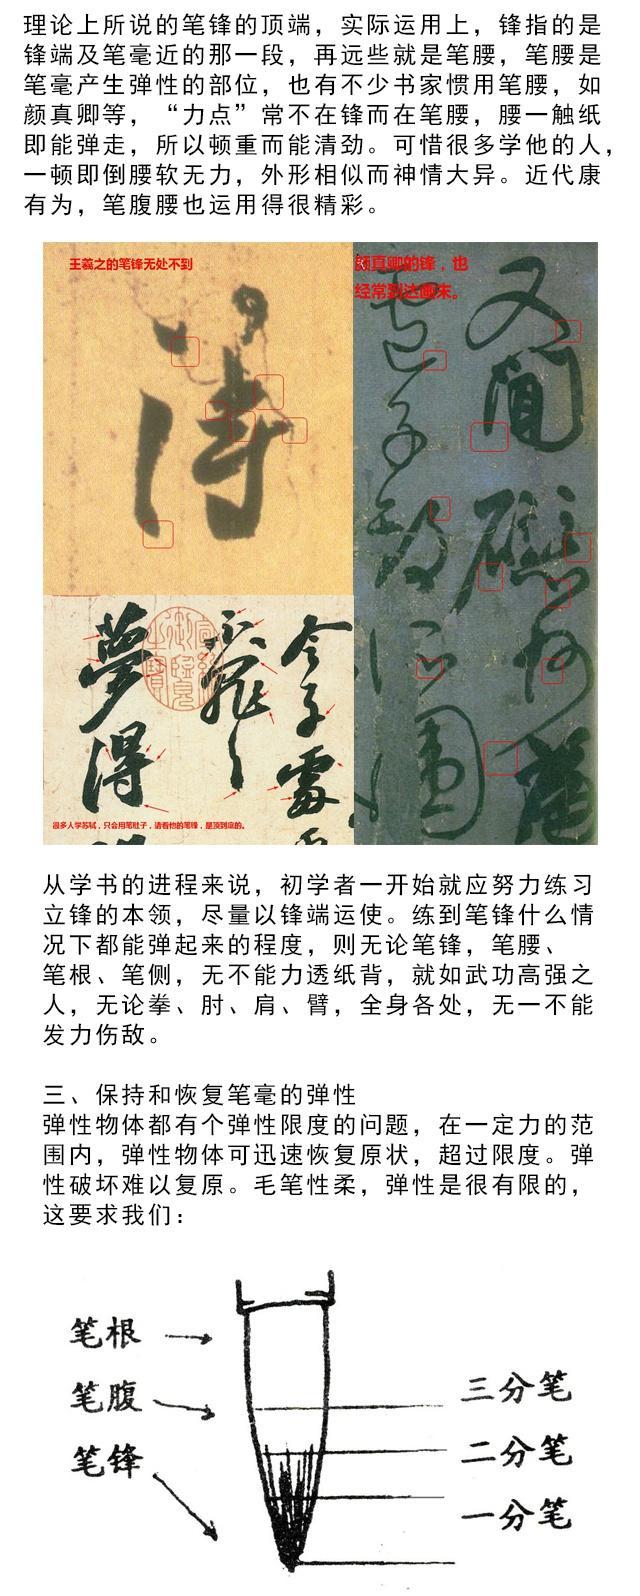 理论上所说的笔锋的顶端，实际运用上，锋指的是
锋端及笔毫近的那一段，再远些就是笔腰，笔腰是
笔毫产生弹性的部位，也有不少书家惯用笔腰，如
颜真卿等，“力点”常不在锋而在笔腰，腰一触纸
即能弹走，所以顿重而能清劲。可惜很多学他的人，
一顿即倒腰软无力，外形相似而神情大异。近代康
有为，笔腹腰也运用得很精彩。
王羲之的笔锋无处不到
得
颜真卿的锋，也
经常到达画末。
又
夢
得
令子
很多人学苏轼，只会用笔肚子，请看他的笔锋，是顶到底的。
从学书的进程来说，初学者一开始就应努力练习
立锋的本领，尽量以锋端运使。练到笔锋什么情
况下都能弹起来的程度，则无论笔锋，笔腰、
笔根、笔侧，无不能力透纸背，就如武功高强之
人，无论拳、肘、肩、臂，全身各处，无一不能
发力伤敌。
三、保持和恢复笔毫的弹性
弹性物体都有个弹性限度的问题，在一定力的范
围内，弹性物体可迅速恢复原状，超过限度。弹
性破坏难以复原。毛笔性柔，弹性是很有限的，
这要求我们：
笔根
笔腹
笔锋
三分笔
二分笔
一分笔